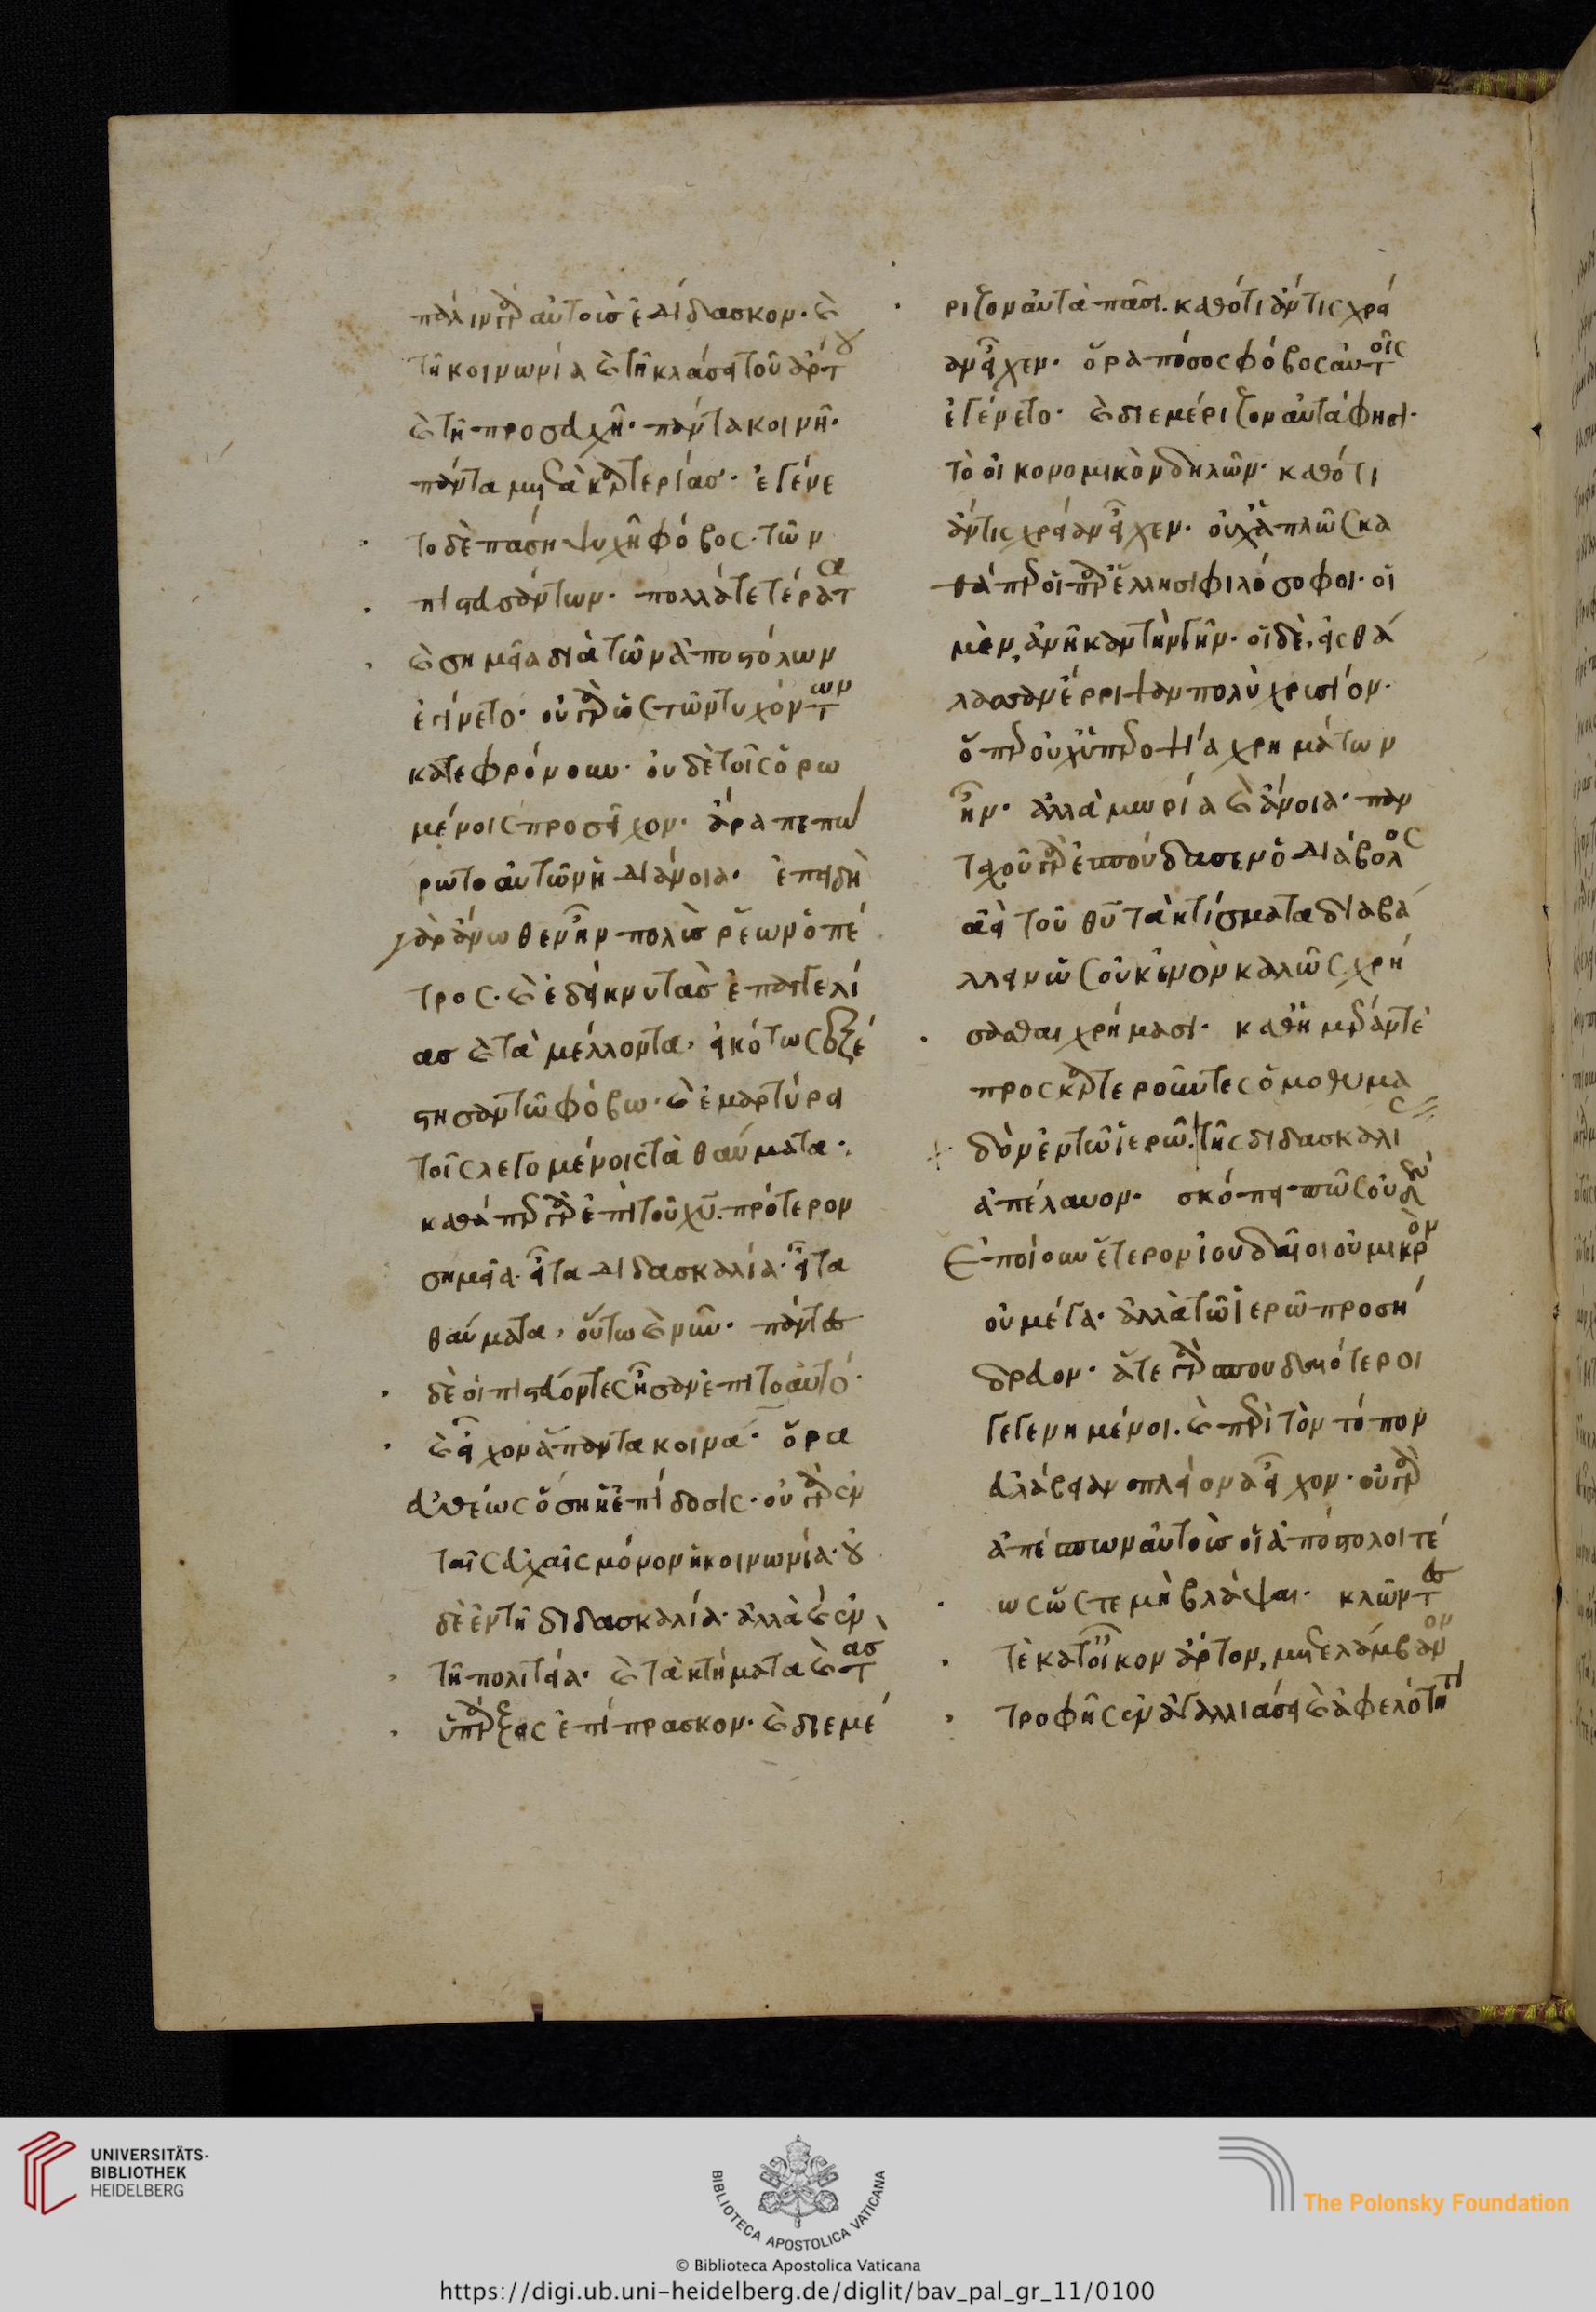 πάλιν γὰρ αὐτοὺς ἐδίδασκον· καὶ
τῆ κοινωνία καὶ τῆ κλάσει τοῦ ἄρτου
καὶ τῆ προσευχῆ· πάντα κοινῆ·
πάντα μετὰ καρτερίας· ἐγένε
το δὲ πάση ψυχῆ φόβος· τῶν
πιστευσάντων· πολλά τε τέρατα
καὶ σημεῖα διὰ τῶν ἀποστόλων
ἐγίνετο· οὐ γὰρ ὡς τῶν τυχόντων
κατεφρόνουν· οὐδὲ τοῖς ὁρω
μένοις προσεῖχον· ἄρα πεπύ
ρωτο αὐτῶν ἡ διάνοια· ἐπειδὴ
γὰρ ἄνωθεν ἦν πολὺς ῥέων ὁ πέ
τρος· καὶ ἐδείκνυ τὰς ἐπαγγελί
ας καὶ τὰ μέλλοντα, εἰκότως ἐξέ
στησαν τῶ φόβω· καὶ ἐμαρτύρει
τοῖς λεγομένοις τὰ θαύματα·
καθάπερ γὰρ ἐπὶ τοῦ χυ· πρότερον
σημεῖα· εἶτα διδασκαλία· εἶτα
θαύματα, οὕτω καὶ νῦν· πάντες
δὲ οἱ πιστεύοντες ἦσαν ἐπιτοαυτό·
καὶ εἶχον ἅπαντα κοινά· ὅρα
εὐθέως ὅση ἡ ἐπίδοσις· οὐ γὰρ ἐν
ταῖς εὐχαῖς μόνον ἡ κοινωνία· οὐ
δὲ ἐν τῆ διδασκαλία· ἀλλὰ καὶ ἐν
τῆ πολιτεία· καὶ τὰ κτήματα καὶ τας
ὑπάρξεις ἐπίπρασκον· καὶ διεμέ
ριζον αὐτὰ πᾶσι· καθότι ἄν τις χρεί
αν εἶχεν· ὅρα πόσος φόβος αὐτοῖς
ἐγένετο· καὶ διεμέριζον αὐτά φησι·
τὸ οἰκονομικὸν δηλῶν· καθότι
ἄν τις χρείαν εἶχεν· οὐχ ἁπλῶς κα
θάπερ οἱ παρ' ἕλλησι φιλόσοφοι· οἱ
μὲν, ἀνῆκαν τὴν γῆν· οἱ δὲ, εἰς θά
λασσαν ἔρριψαν πολὺ χρυσίον·
ὅπερ οὐχ ὑπεροψία χρημάτων
ἦν· ἀλλὰ μωρία καὶ ἄνοια· παν
ταχοῦ γὰρ ἐσπούδασεν ὁ διάβολος
ἀεὶ τοῦ θυ τὰ κτίσματα διαβά
λλειν ὡς οὐκ ἐνὸν καλῶς χρή
σασθαι χρήμασι· καθ' ἡμέραν τὲ
προσκαρτεροῦντες ὁμοθυμα
δὸν ἐν τῶ ἱερῶ· τῆς διδασκαλίας
ἀπέλαυον· σκόπει πῶς οὐδὲν
ἐποίουν ἕτερον ἰουδαῖοι οὐ μικρὸν
οὐ μέγα· ἀλλὰ τῶ ἱερῶ προσή
δρευον· ἅτε γὰρ σπουδαιότεροι
γεγενημένοι· καὶ περὶ τὸν τόπον
εὐλάβειαν πλείονα εἶχον· οὐ γὰρ
ἀπέσπων αὐτοὺς οἱ ἀπόστολοι τέ
ως ὥστε μὴ βλάψαι· κλῶντες
τὲ κατοῖκον ἄρτον, μετελάμβανον
τροφῆς ἐν ἀγαλλιάσει καὶ ἀφελότητι
UNIVERSITÄTS-
BIBLIOTHEK
HEIDELBERG
BIBLIOTECA APOSTOLICA VATICANA
The Polonsky Foundation
© Biblioteca Apostolica Vaticana
https://digi.ub.uni-heidelberg.de/diglit/bav_pal_gr_11/0100